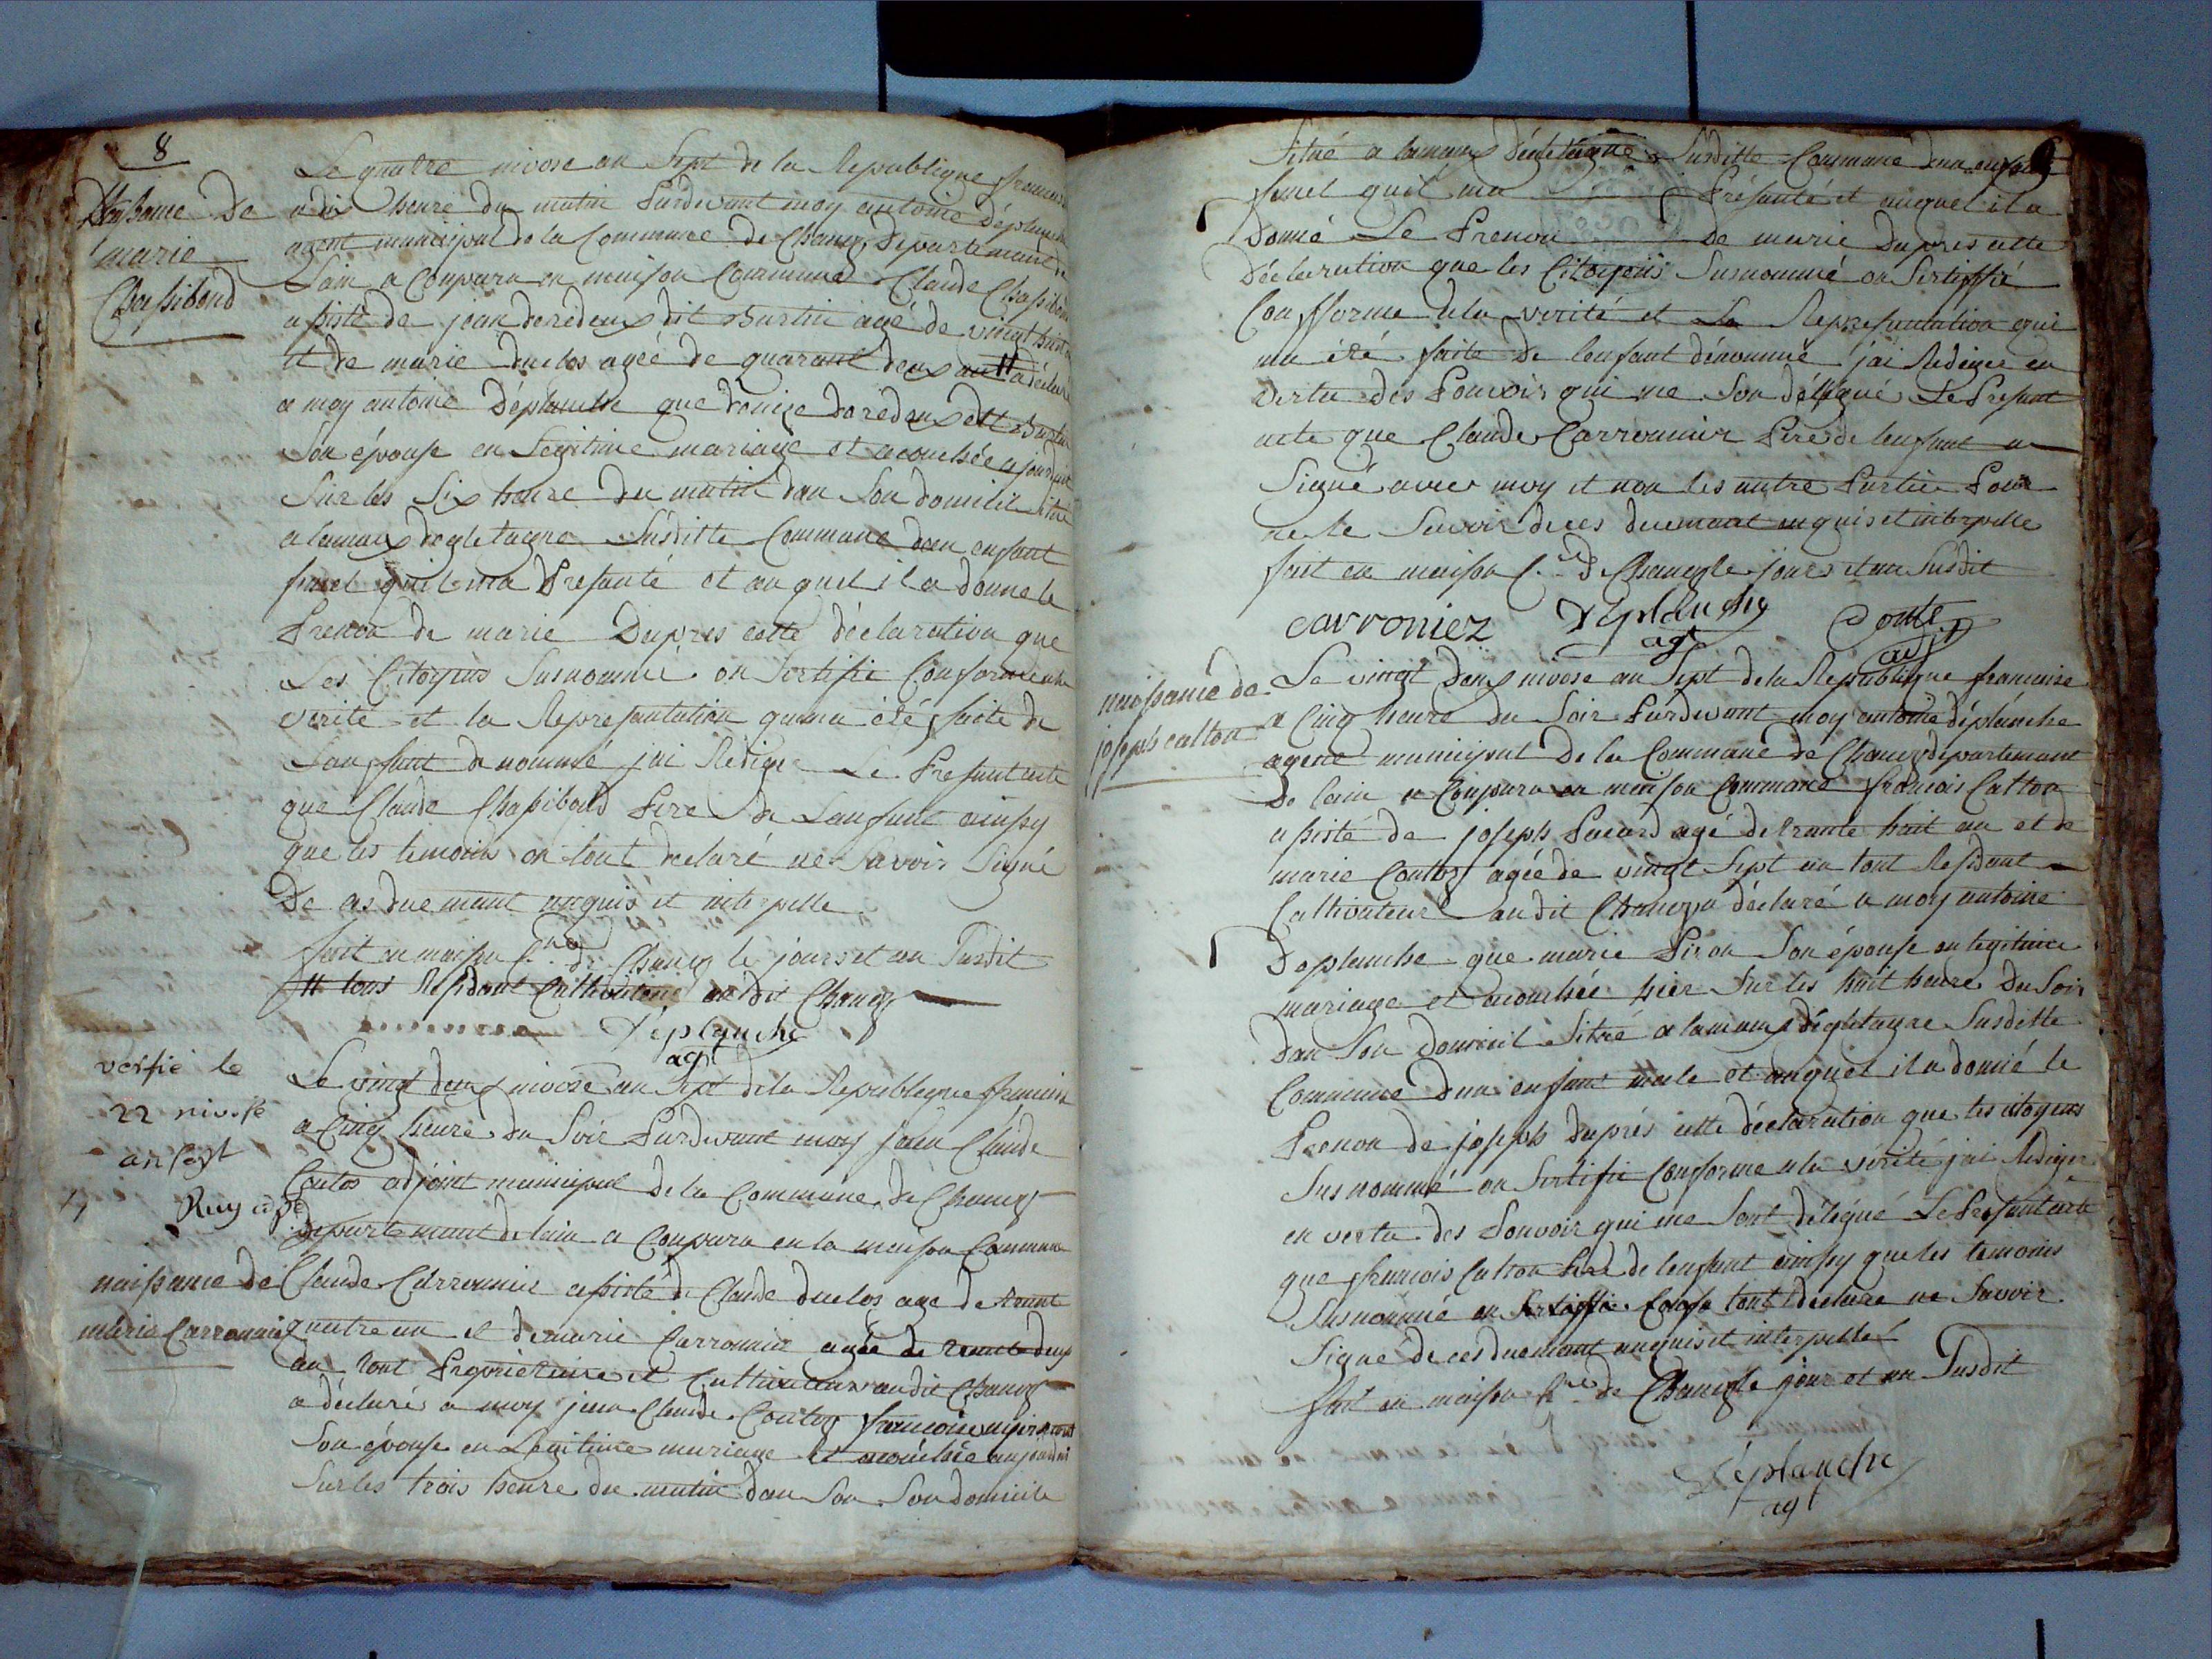 8
Naissance De
marie
Chassiboud
Le quatre nivose an Sept de la Republique francaise
a dix heure du matin Pardevant moy antoine déplanche
agent municipal de la Commune de Chaney Departement de
Lain a Conparu en maison Commune Claude Chassiboud
assisté de jean doredeux dit Burtin agé de vingt huit an
et de marie duclos agéé de quarant deux an # a déclaré
a moy antoine Déplanche que doredeux dit Burtin
Son épouse en Legitime mariage et acouchée ajourduit
Sur les Six heure du matin dan Son domicile Sitré
a lamaux degletagne Susditte Commune dun enfant
femel quil ma Presanté et au quel il a donné le
Prenon de marie Dapres cette déclaration que
Les Citoyens Susnommé on Sertifie Conforme a la
verité et la Represantation qui ma été faite de
Lanffant denommé jai Rédigé Le Presant acte
que Claude Chassiboud Pere de Lanfant ainssy
que les temoins on tout declaré ne Savoir Signé
De ces duemant anquis et interpelle
fait en maison C.ne de Chaney le jours et an Susdit
# tous Residant Cultivateur au dit Chaney
Déplanche
agt
verfié le
22 nivose
an sept
Le vingt deux nivose an Sept de la Republique francaise
a Cinq heure du Soir Pardevant moy jean Claude
Contos adjoint municipal de la Commune de Chaney
departemant de lain a Conparu en la maison Commune
naissance de
marie Carronnier
Claude Carronnier assisté de Claude duclos age de trante
quatre an et de marie Carronnier agée de trante deux
an tout Proprietaire et Cultivateur au dit Chaney
a déclaré a moy jean Claude Contos francoise
Son épouse en Legitime mariage et acouchée aujourdui
Sur les trois heure du matin dan Son Son domicile
Sitré a lamaux dégletagne Susditte Commune dun enfant
femel quil ma Présanté et auquel il a
Donné Le Prenon de marie Dapres cette
Déclaration que les Citoyens Susnommé on Sertiffié
Confforme a la verité et La Represantation qui
ma été faite De lenfant dénommé jai Rediger en
Vertu des Pouvoir qui me Son délégué Le Presant
acte que Claude Carronnier Pere de lenfant a
Signé avec moy et non les autre Partie Pour
ne le Savoir de ces duemant anquis et interpelle
fait en maison C.ne de Chaney le jours et an Susdit
carroniez Déplanche Conte
agt adj
naissance de
joseph catton
Le vingt deux nivose an Sept de la Republique francaise
a Cinq heure du Soir Pardevant moy antoine déplanche
agent municipal De la Commune de Chaney departemant
De lain a Conparu en maison Commune francois Catton
assisté de joseph Pacard agé de trante huit an et de
marie Contos agée de vingt Sept an tout Residant
Cultivateur au dit Chaney a déclaré a moy antoine
Deplanche que marie Piron Son épouse en legitime
mariage et acouchée hier Sur les huit heure du Soir
Dan Son domicil Sitré a lamaux dégletagne Susditte
Commune dun enfant male et auquel il a donné le
Prenon de joseph Daprés cette déclaration que les citoyens
Susnommé on Sertifie Conforme a la vérité jai Rédiger
en vertu des Pouvoir qui me Sont délégué Le Presant acte
que francois Catton Pere de lenfant ainssy que les temoins
Susnommé on Sertiffie tout déclaré ne Savoir
Signé de ces duemant anquis et interpellé
fait en maison C.ne de Chaney le jour et an Susdit
Déplanche
agt